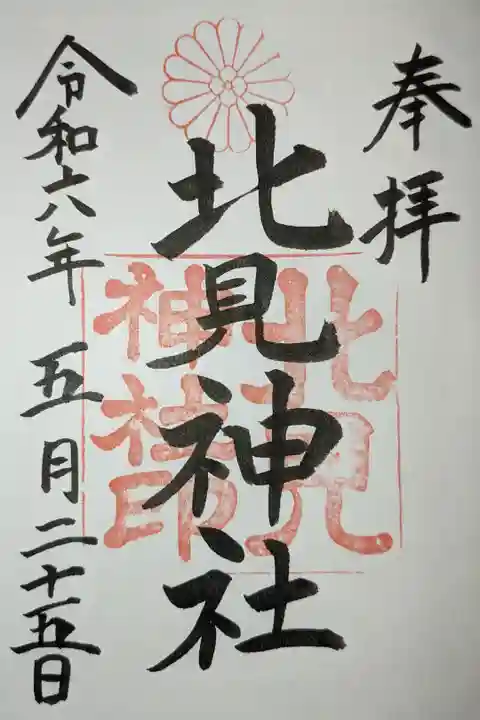 奉拝
北見神社
北見
神社印
令和六年 五月二十五日